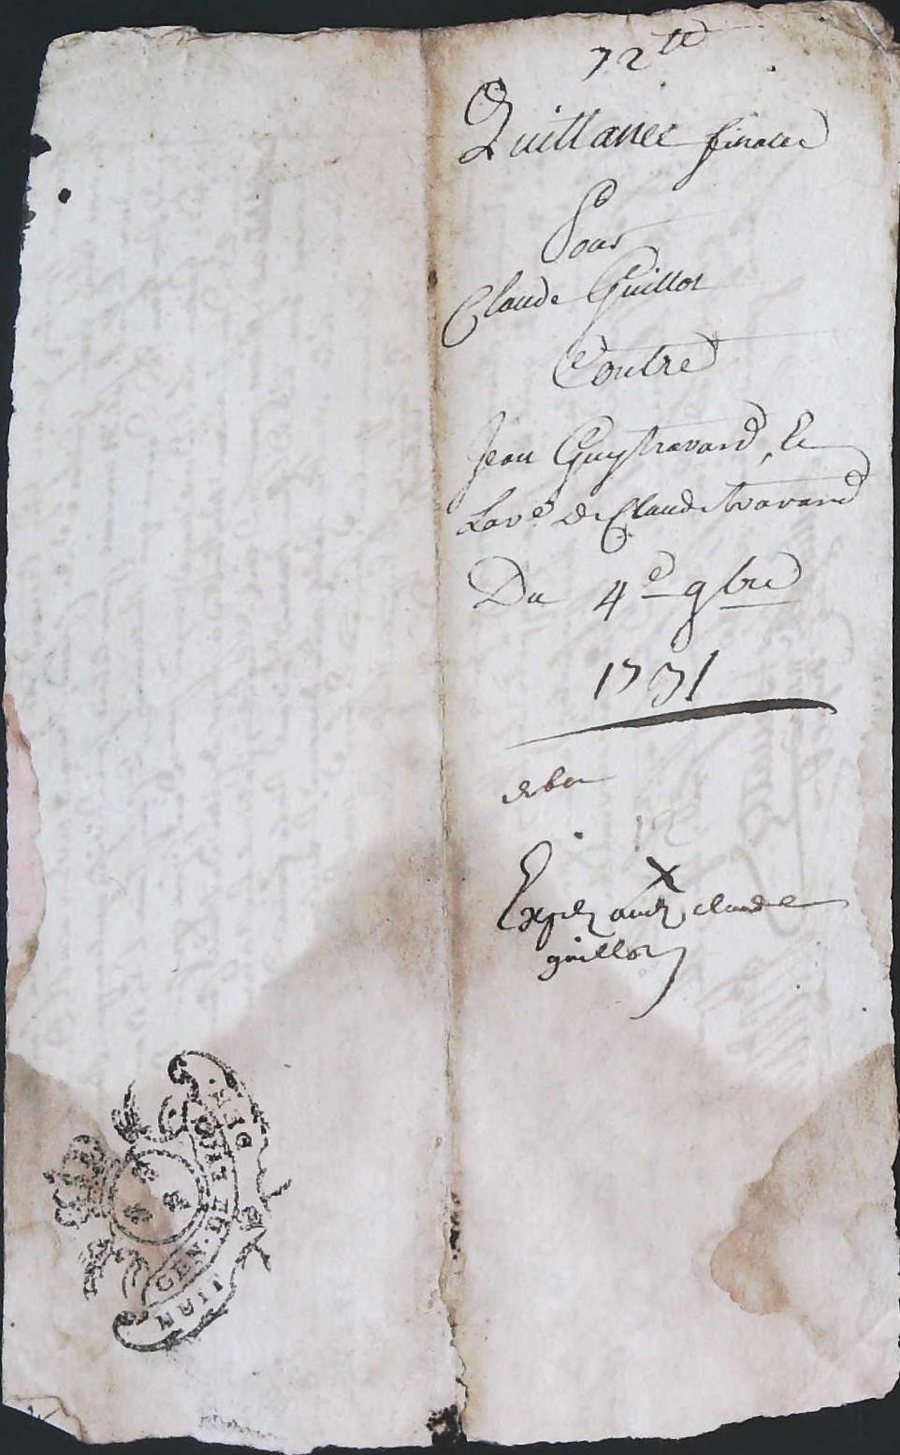 72 tt
Quittance finale
Pour
Claude Guillot
Contre
Jean Guy travard, Et
La ve De Claude travard
Du 4e 9bre
1731
Expedié audit claude
guillot
GEN. DE
HUIT DEN.